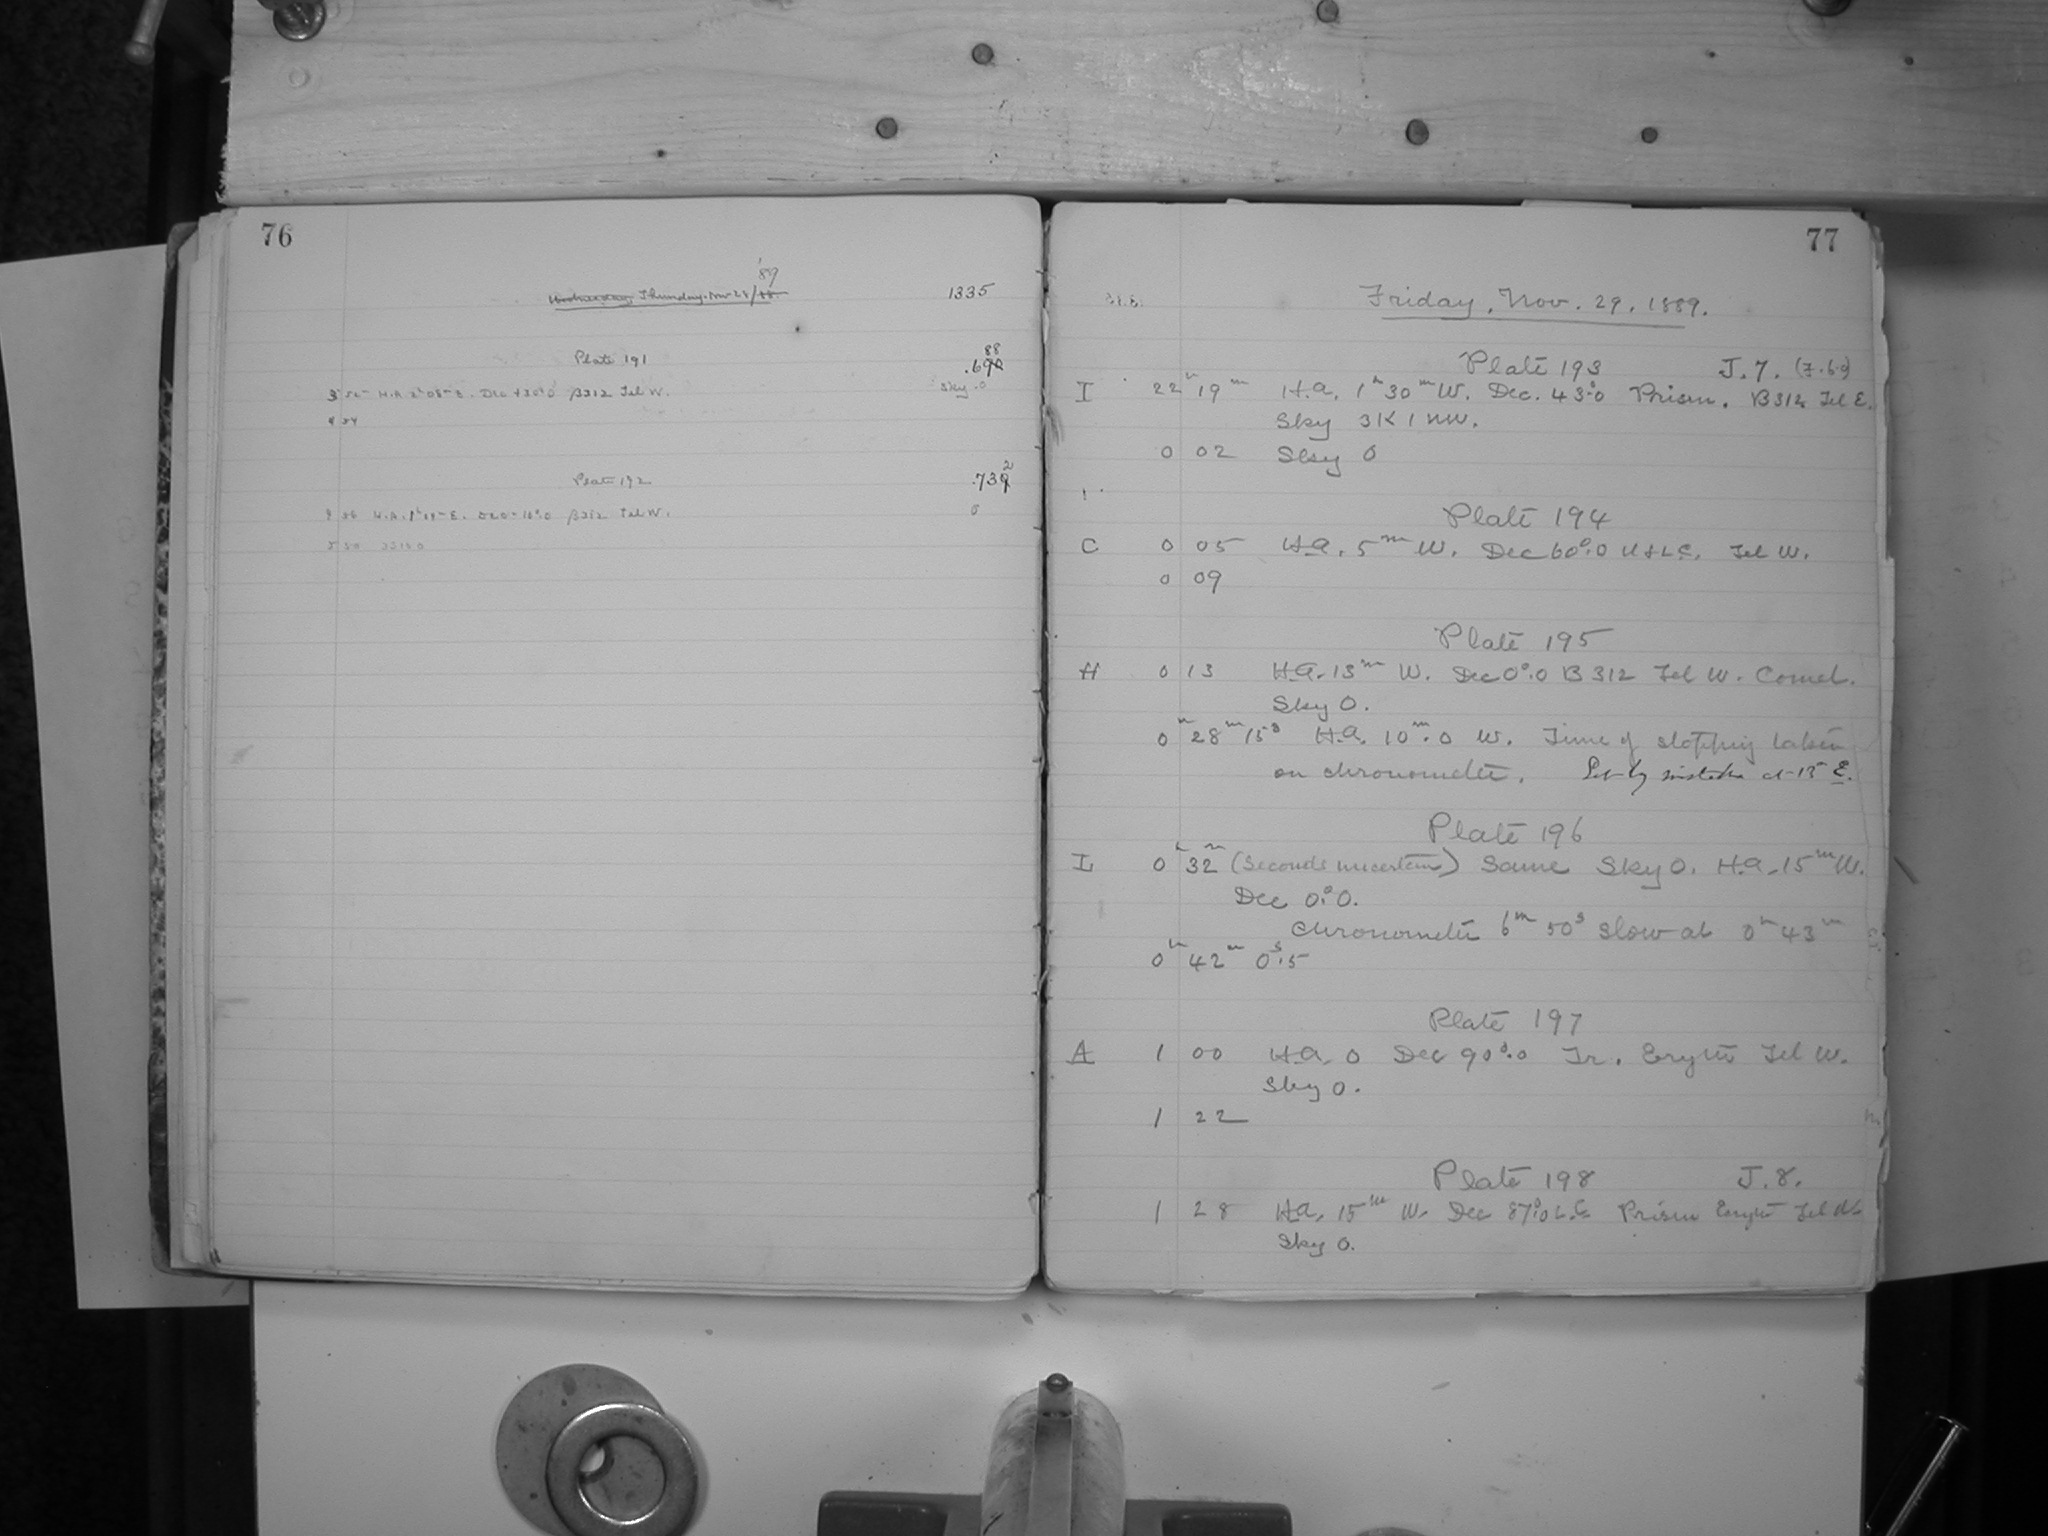 76
'89
Wednesday Thursday. Nov 28/88.
1335
Plate 191
88
.692
H.A. 2h 08m E. Dec +30°.0 β312 Tel W.
Sky 0
4 34
Plate 192
2
.739
H.A. E. Dec -10°.0 β312 Tel W.
0
77
Friday, Nov. 29, 1889.
Plate 193 J. 7. (7.6.9)
I 22h 19m H.a. 1h 30m W. Dec. 43°.0 Prism. B312 Tel E.
Sky 3K 1 NW.
0 02 Sky 0
Plate 194
C 0 05 H.a. 5m W. Dec 60°.0 U + L C. Tel W.
0 09
Plate 195
H 0 13 H.a. 13m W. Dec 0°.0 B 312 Tel W. Comet.
Sky 0.
0h 28m 15s H.a. 10m.0 W. Time of stopping taken
on chronometer. Set by mistake at 15m E.
Plate 196
I 0h 32m (Seconds uncertain) Same Sky 0. H.a. 15m W.
Dec 0°.0.
Chronometer 6m 50s slow at 0h 43m
0h 42m 0s.5
Plate 197
A 1 00 H.a. 0 Dec 90°.0 Tr. Eryth Tel W.
Sky 0.
1 22
Plate 198 J. 8.
1 28 H.a. 15m W. Dec 87°.0 L.C. Prism Eryth Tel W.
Sky 0.